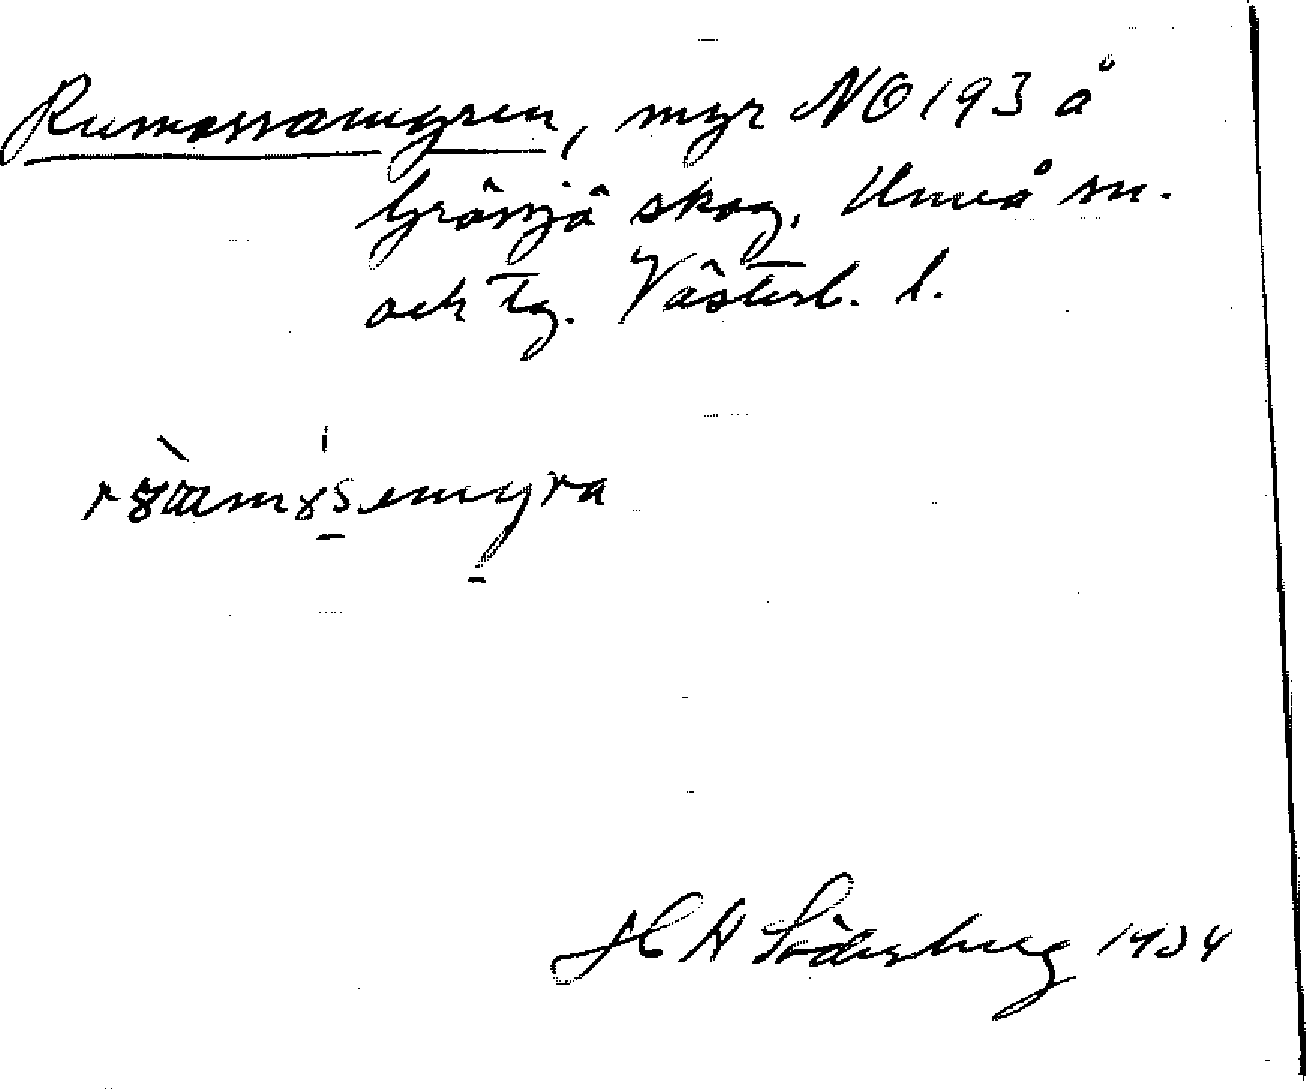 Rumossamyren, myr NO 193 å
Gräsjä skog, Umeå sn.
och tg. Västerb. l.
H A Söderberg 1934